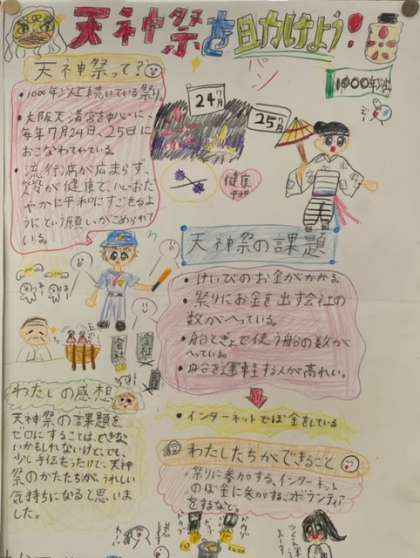 天神祭を助けよう!
1000年以上
天神祭って?
・1000年以上続いている祭り
・大阪天満宮を中心に、
毎年7月24日、25日に
おこなわれている。
・流行病が広まらず、
皆が健康で、心おだ
やかに平和にすごせるよ
うにという願いがこめられて
いる。
7月
24
7月
25
健康
天神祭の課題
・けいびのお金がかかる。
・祭りにお金を出す会社の
数がへっている。
・船とぎょで使う船の数が
へっている。
・船を運転する人が高れい。
会社
会社
・インターネットでぼ金をしている
わたしの感想
天神祭の課題を
ゼロにすることは、できな
いかもしれないけど、でも、
少し手伝もったけで、天神
祭のかたたちが、うれしい
気持ちになると思いま
した。
わたしたちができること
・祭りに参加する、インターネット
のぼ金に参加する、ボランティア
をするなど。